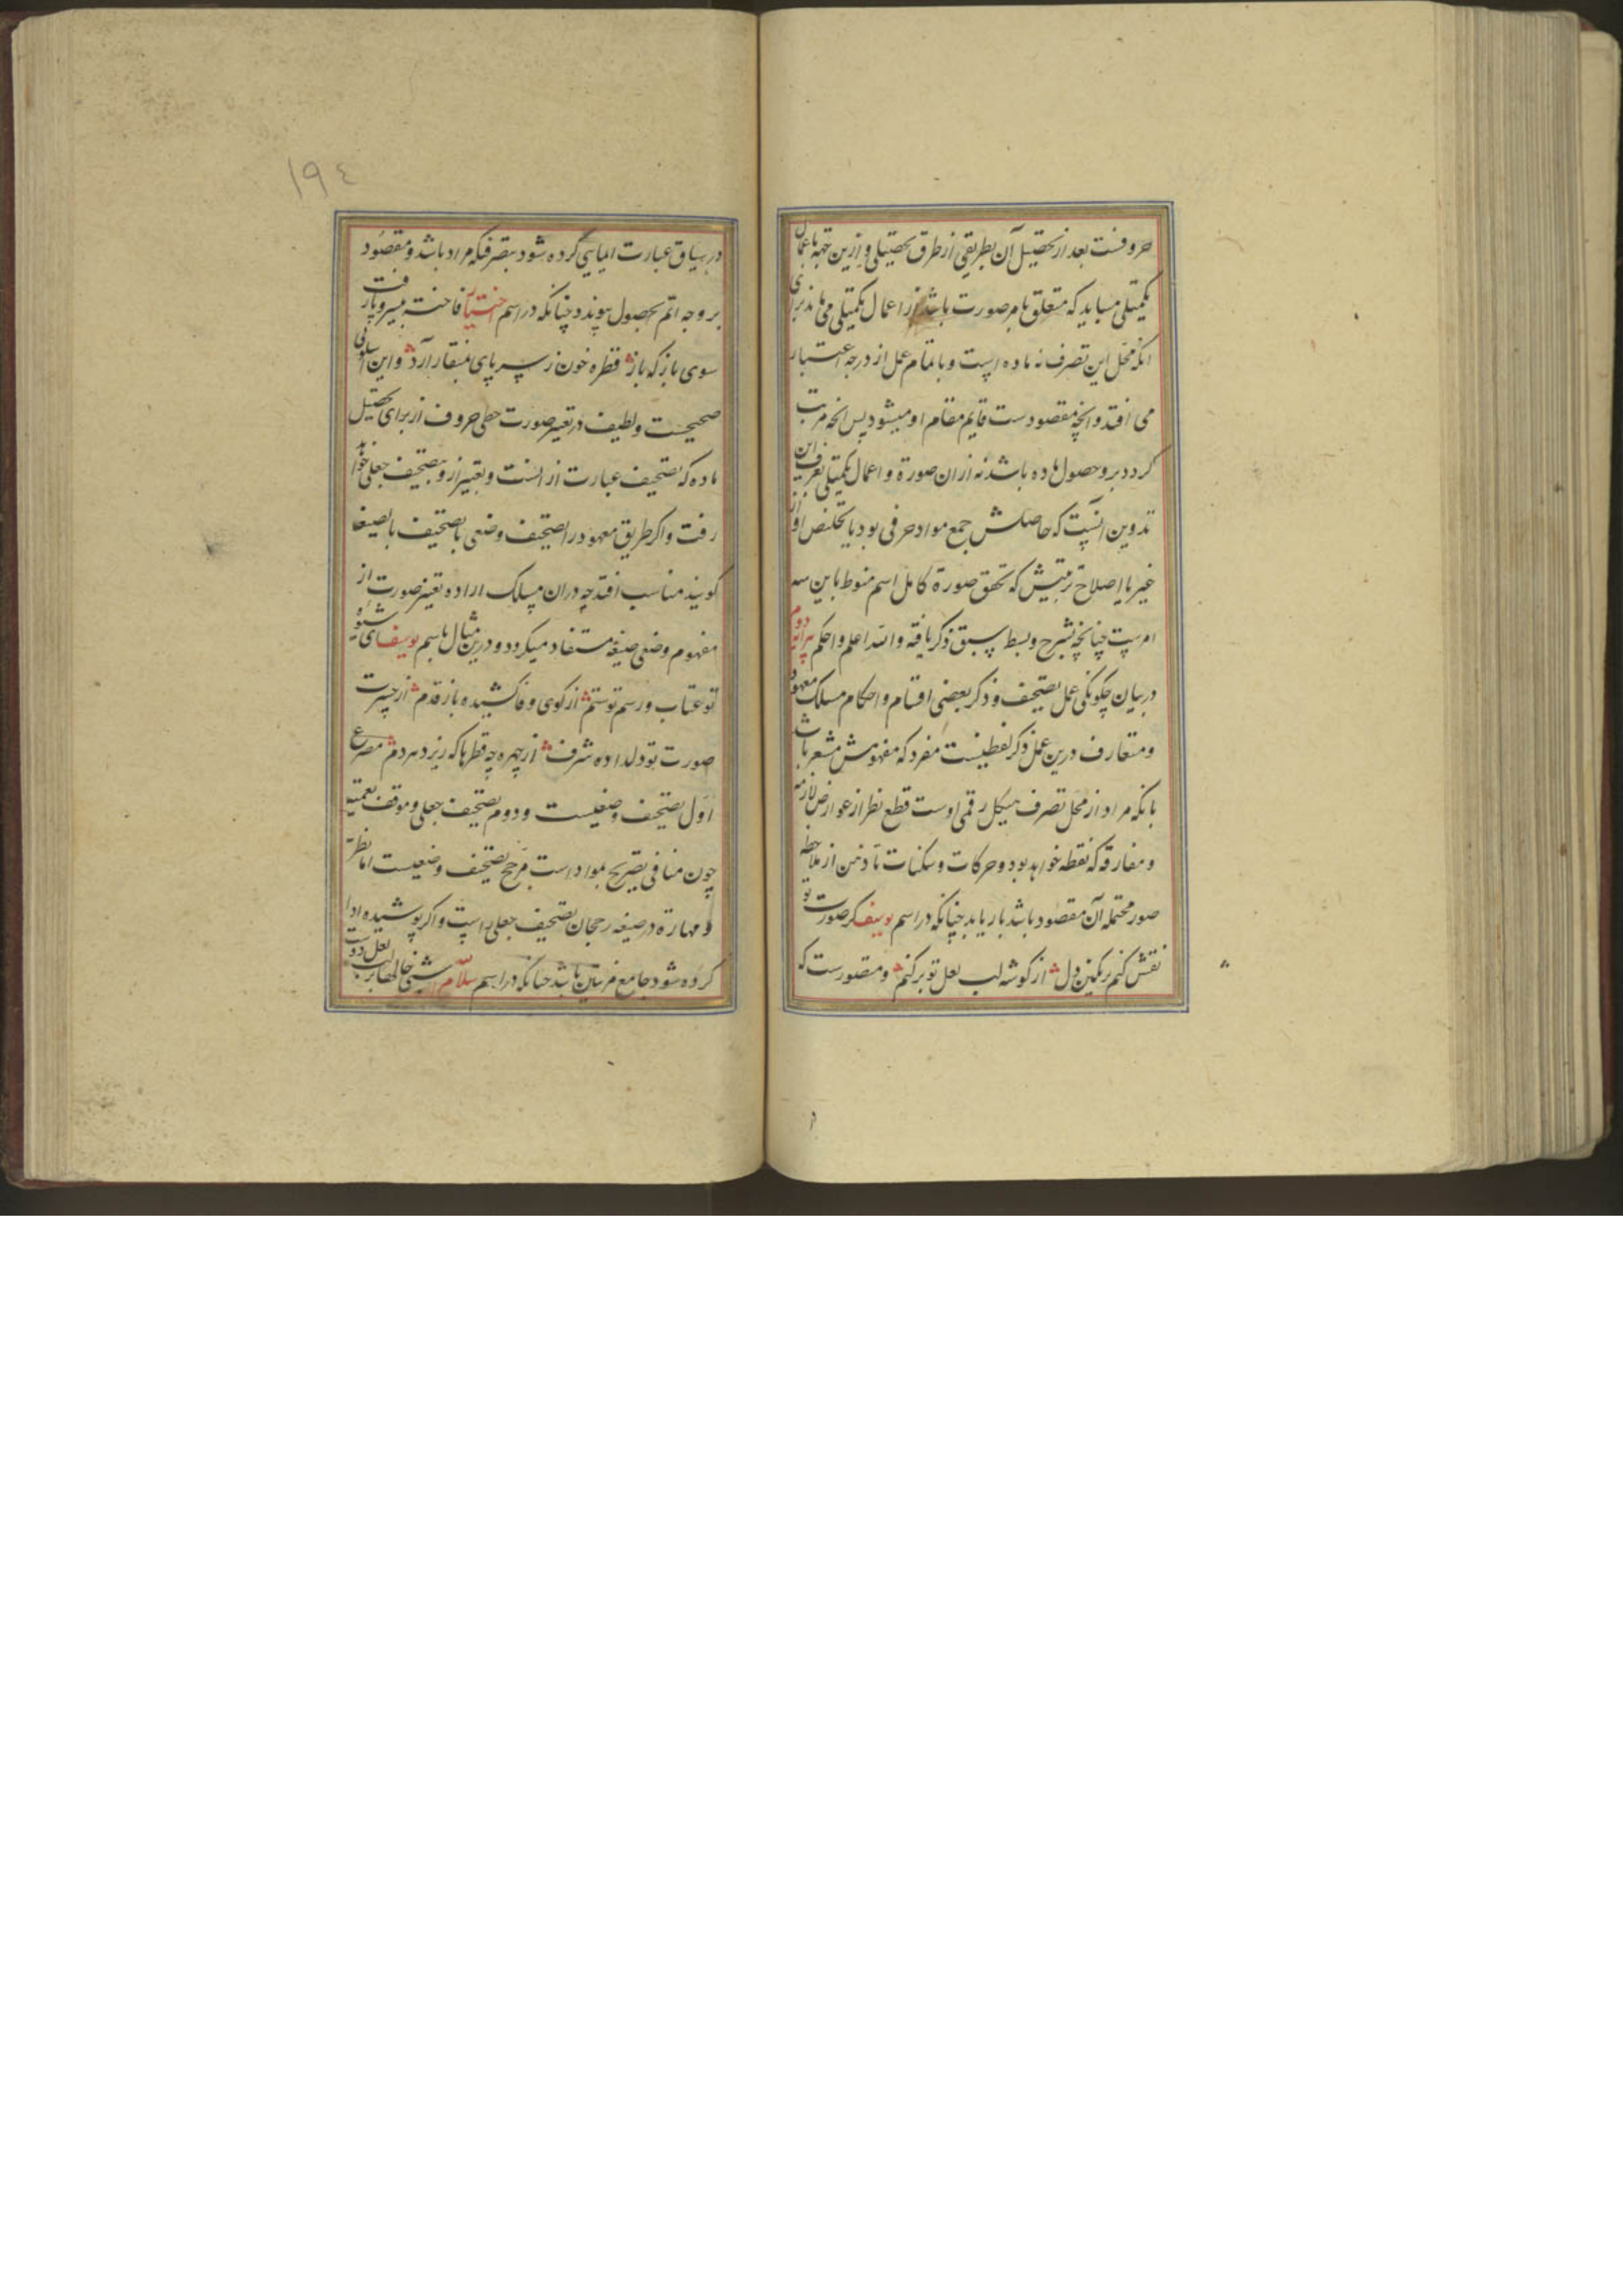 حروفست بعد از تحصیل آن بطریقی از طرق تحصیلی و ازین جهة باعمال
تکمیلی میباید که متعلق بامر صورت باشد از اعمال تکمیلی می
انکه محل این تصرف نه ماده است و باتمام عمل از درجه اعتبار
می افتد و انچه مقصودست قایم مقام او میشود پس انچه مرتب
کردد برو حصول ماده باشد نه ازان صورة و اعمال تکمیلی بعرف این
تدوین آنست که حاصلش جمع مواد حرفی بود یا تخلیص او از
غیر یا اصلاح ترتیبش که تحقق صورة کامل اسم منوط باین سه
امرست چنانچه بشرح و بسط سبق ذکر یافته والله اعلم و احکم پیرایه دوم
در بیان چکونکی عمل تصحیف و ذکر بعضی اقسام و احکام مسلک معهود
و متعارف درین عمل ذکر لفظیست مفرد که مفهومش مشعر باشد
بانکه مراد از محل تصرف هیکل رقمی اوست قطع نظر از عوارض لازمه
و مفارقه که نقطه خواهد بود و حرکات و سکنات تا ذهن از ملاحظه
صور محتمله آن مقصود باشد باز یابد چنانکه در اسم یوسف کر صورت تو
نقش کنم بر نکین دل از کوشه لب لعل تو بر کنم و مقصورست که
١٩٤
در سیاق عبارت ایمایی کرده شود بتصرفیکه مراد باشد و مقصود
بر وجه اتم بحصول پیوندد چنانکه در اسم اختیار فاخته بی سر و پا رفت
سوی باز که باز قطره خون ز سر پای بمنقار آرد و این اسالیب
صحیحست و لطیف در تغیر صورت خطی حروف از برای تحصیل
ماده که تصحیف عبارت از انست و تعبیر ازو بتصحیف جعلی خواهد
رفت و اکر طریق معهود را تصحیف وضعی یا تصحیف بالصیغه
کویند مناسب افتد چه دران مسلک اراده تغیر صورت از
مفهوم وضعی صیغه مستفاد میکردد و درین مثال باسم یوسف ای شیوه
تو عتاب و رسم تو ستم از کوی وفا کشیده باز قدم از حیرت
صورت تو دلداده شرف از چهره چه قطرها که ریزد هر دم مصرع
اول تصحیف وضعیست و دوم تصحیف جعلی و موقف تعمیه
چون منافی تصریح بمواد است مرجح تصحیف وضعیست اما نظر
و مهارة در صیغه رجحان تصحیف جعلی راست و اکر پوشیده ادا
کرده شود جامع مزیتین باشد چنانکه در اسم سلام لب لعل دوست